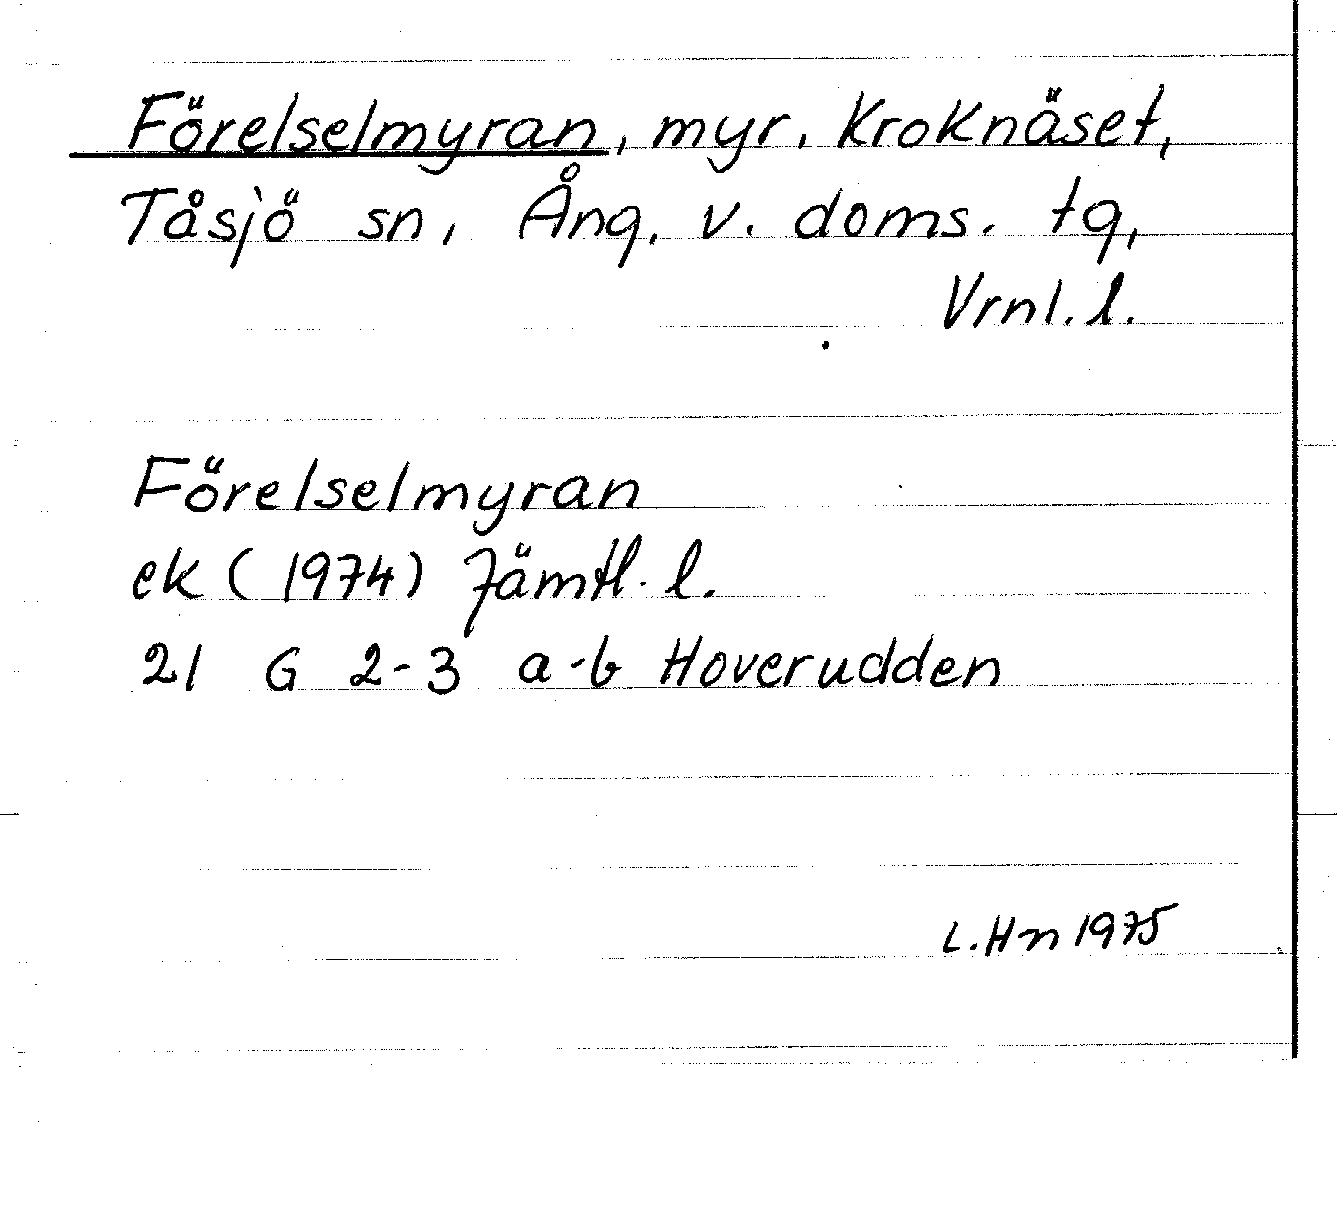 Förelselmyran, myr, Kroknäset,
Tåsjö sn, Ång. v. doms. tg,
Vrnl. l.
Förelselmyran
ek (1974) Jämtl. l.
21 G 2-3 a-b Hoverudden
L. Hn 1975